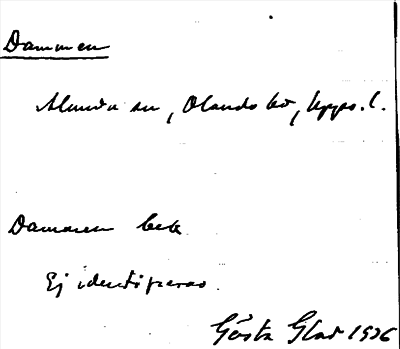 Dammen
Almunda sn, Olands hd, Upps. l.
Dammen bete
Ej identifieras.
Gösta Glad 1936